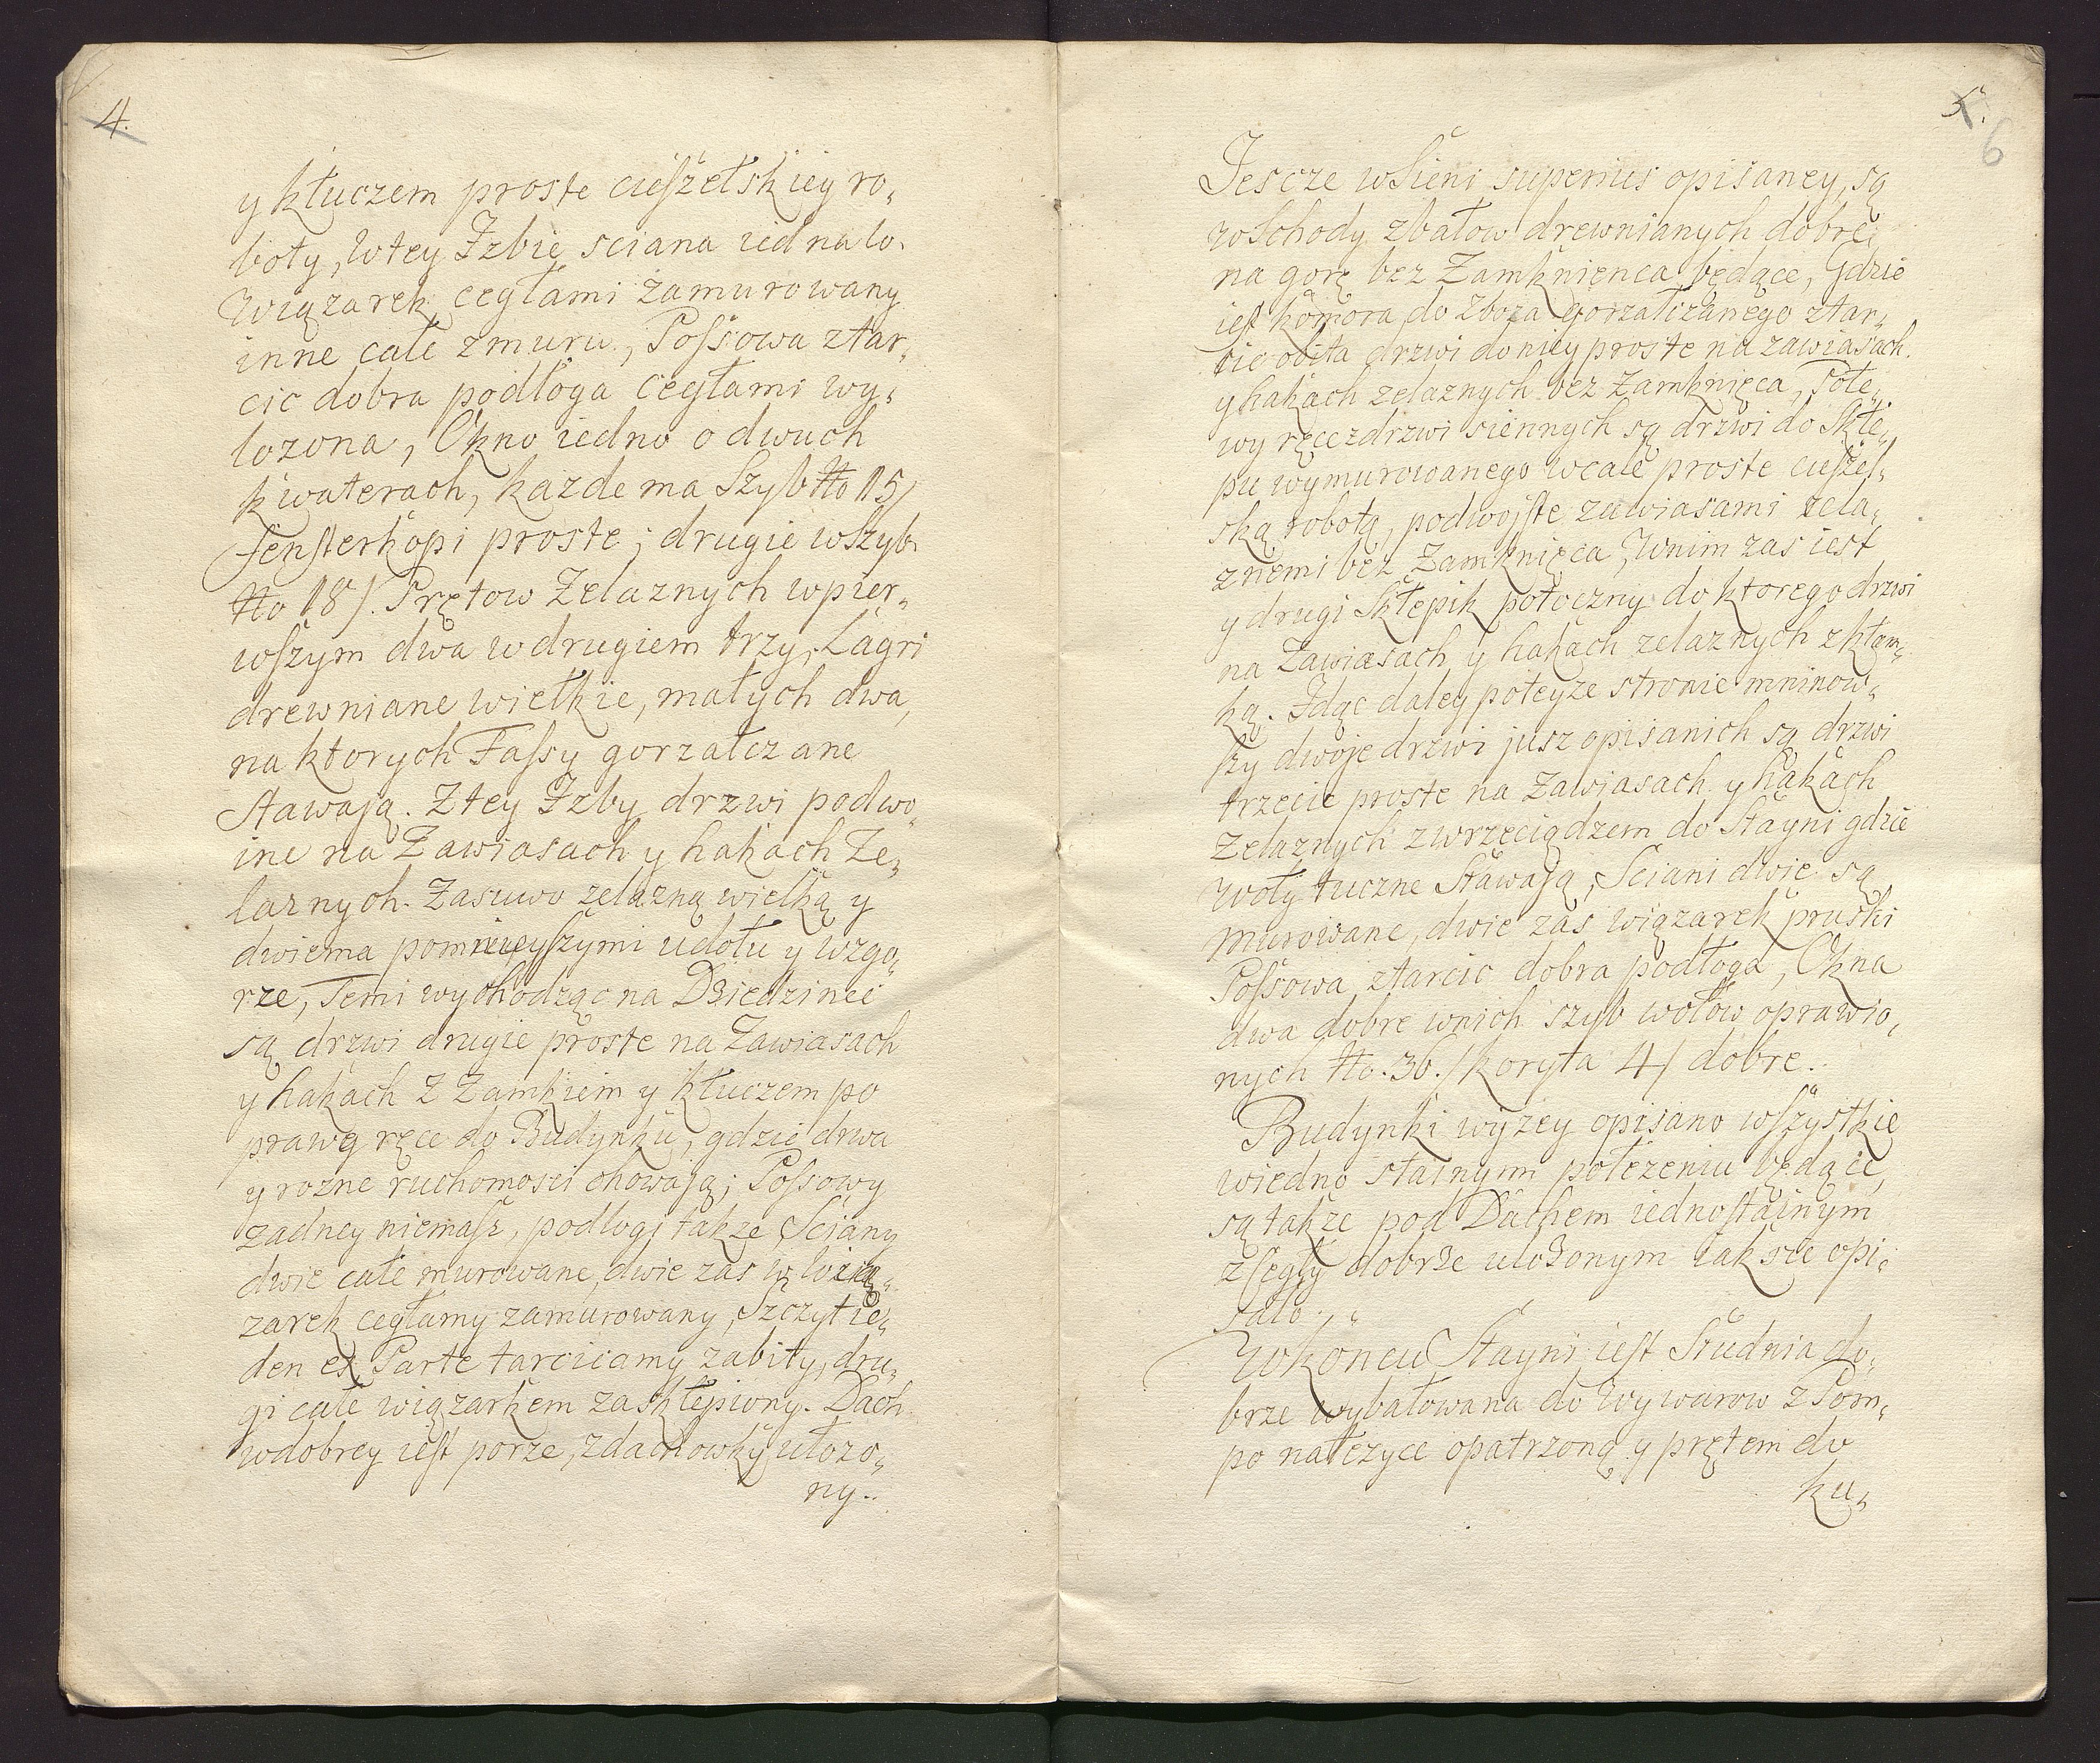 4.
y kłuczem proste cieszelskiey ro,
boty, W tey Jzbie sciana iedna w
Wiązarek cegłami zamurowany
inne całe z muru, Possowa z tar,
cic dobra podłoga cegłami wy,
lozona, Okno iedno o dwuch
kwaterach, kazde ma Szyb No 15/
Fensterkopi proste; drugie w Szyb
No 18/. Prętow Zelaznych w pier,
wszym dwa w drugiem trzy, Lagri
drewniane wielkie, małych dwa,
na ktorych Fassy gorzałczane
stawają. Z tey Jzby drzwi podwo,
ine na Zawiasach y hakach Ze,
laznych. Zasuwo zelazną wielką y
dwiema pomnieyszymi u dołu y w zgo,
rze, Temi wychodząc na Dziedziniec
są drzwi drugie proste na Zawiasach
y hakach z Zamkiem y kłuczem po
prawę ręce do Budynku, gdzie drwa
y rozne ruchomosci chowają; Possowy
zadney niemasz, podlogi takze Sciany
dwie całe murowane, dwie zas w wią,
zarek cegłamy zamurowany, Szczyt ie,
den ex Parte tarcicamy zabity, dru,
gi całe wiązarkem zasklepiony. Dach
w dobrey iest porze, z dachowky ułozo,
ny..
5.
6
Jescze w Sieni superius opisaney, są
wschody z bałow drewnianych dobre
na gorę bez Zamknienca będące, Gdzie
iest komora do Zboza gorzałczanego z tar,
cic obita drzwi do niey proste na zawiasach
y hakach zelaznych bez Zamknięca, Po łe,
wy ręce z drzwi siennych są drzwi do Skłe,
pu wymurowanego wcale proste cieszel,
ską robotą, podwojste zawiasami zela,
znemi bez Zamknięca, W nim zas iest
y drugi Skłepik potoczny do ktorego drzwi
na Zawiasach y hakach zelaznych z kłam,
ką. Jdąc daley po teyze stronie mninow,
szy dwoje drzwi jusz opisanich są drzwi
trzecie proste na Zawiasach y hakach
Zelaznych z wrzeciądzem do Stayni gdzie
Woły tuczne stawają, Sciani dwie są
murowane, dwie zas wiązarek pruski
Possowa z tarcic dobra podłoga, Okna
dwa dobre w nich szyb w ołow oprawio,
nych No. 36./ koryta 4/ dobre.
Budynki wyzey opisano wszystkie
w iedno stainym połezeniu będące,
są takze pod Dachem iednostainym
z Cegły dobrze ulozonym iak sie opi,
sało.,,
W koncu Stayni iest Studnia do,
brze wybałowana do Wywarow z Pom,
po nałezyce opatrzoną y prętem do
ku,